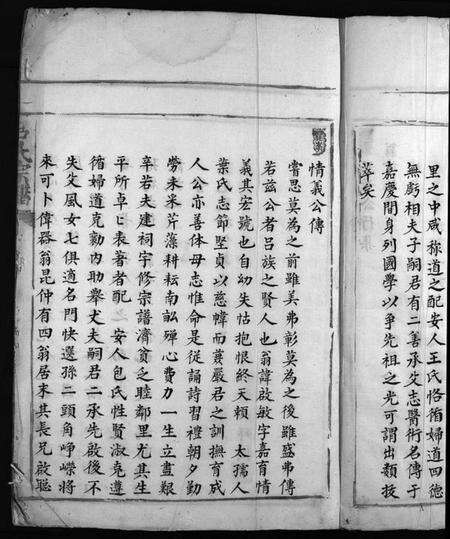 里之中咸称道之配安人王氏恪循婦道四德
無虧相夫子嗣君有二善承父志醫術名傳于
嘉慶間身列國學以爭先祖之光可謂出類拔
萃矣
情義公傳
嘗思莫為之前雖美弗彰莫為之後雖盛弗傳
若兹公者吕族之賢人也翁諱啟敏字嘉育情
義其安號也自幼失怙抱恨終天頼 太孺人
葉氏志節堅貞以慈幃而蒹嚴君之訓撫育成
人公亦善体母志惟命是從誦詩習禮朝夕勤
勞未采芹藻耕耘南訟殫心費力一生立畫艱
辛若夫建祠宇修宗譜濟貧乏睦鄰里尤其生
平所卓卓表著者配 安人包氏性賢淑克遵
循婦道克勤内助舉丈夫嗣君二承先啟後不
失父風女七俱適名門快遂孫二頭角崢嶸將
來可卜偉器翁昆仲有四翁居末其長兄啟聪